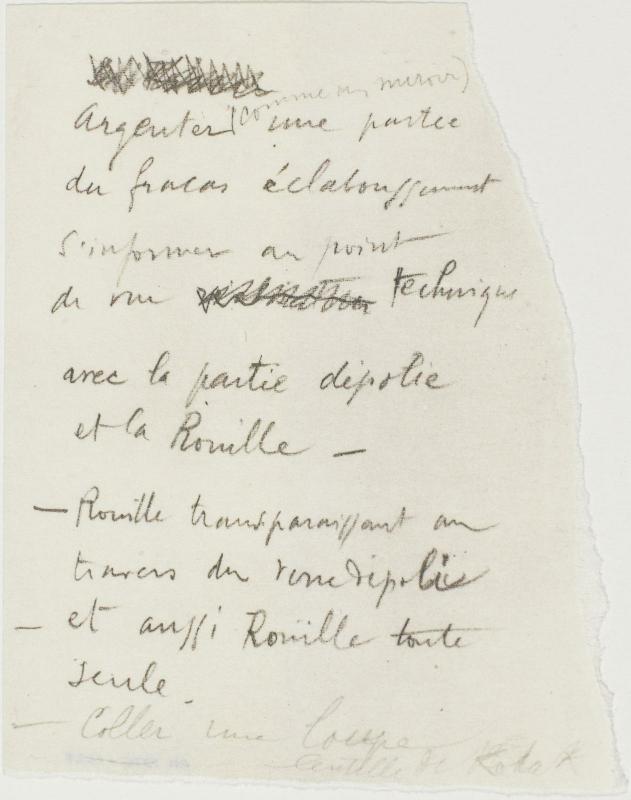 (comme un miroir)
Argenter une partie
du fracas éclaboussement
S'informer au point
de vue technique
avec la partie dépolie
et la Rouille —
— Rouille transparaissant au
travers du verre dépoli
— et aussi Rouille toute
seule.
— Coller une loupe
lentille de Kodak